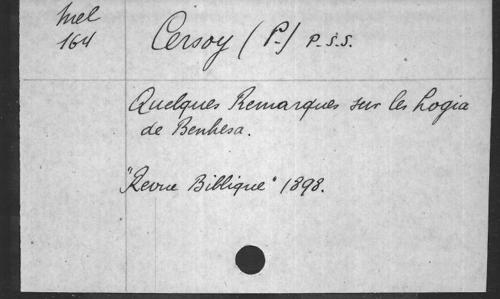 Mel
164
Cersoy (P.) P.S.S.
Quelques Remarques sur les Logia
de Benhesa.
"Revue Biblique" 1898.